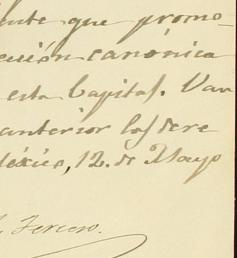 ente que promo-
ución canónica
esta Capital. Van
anterior los dere
México, 12. de Mayo
Tercero.